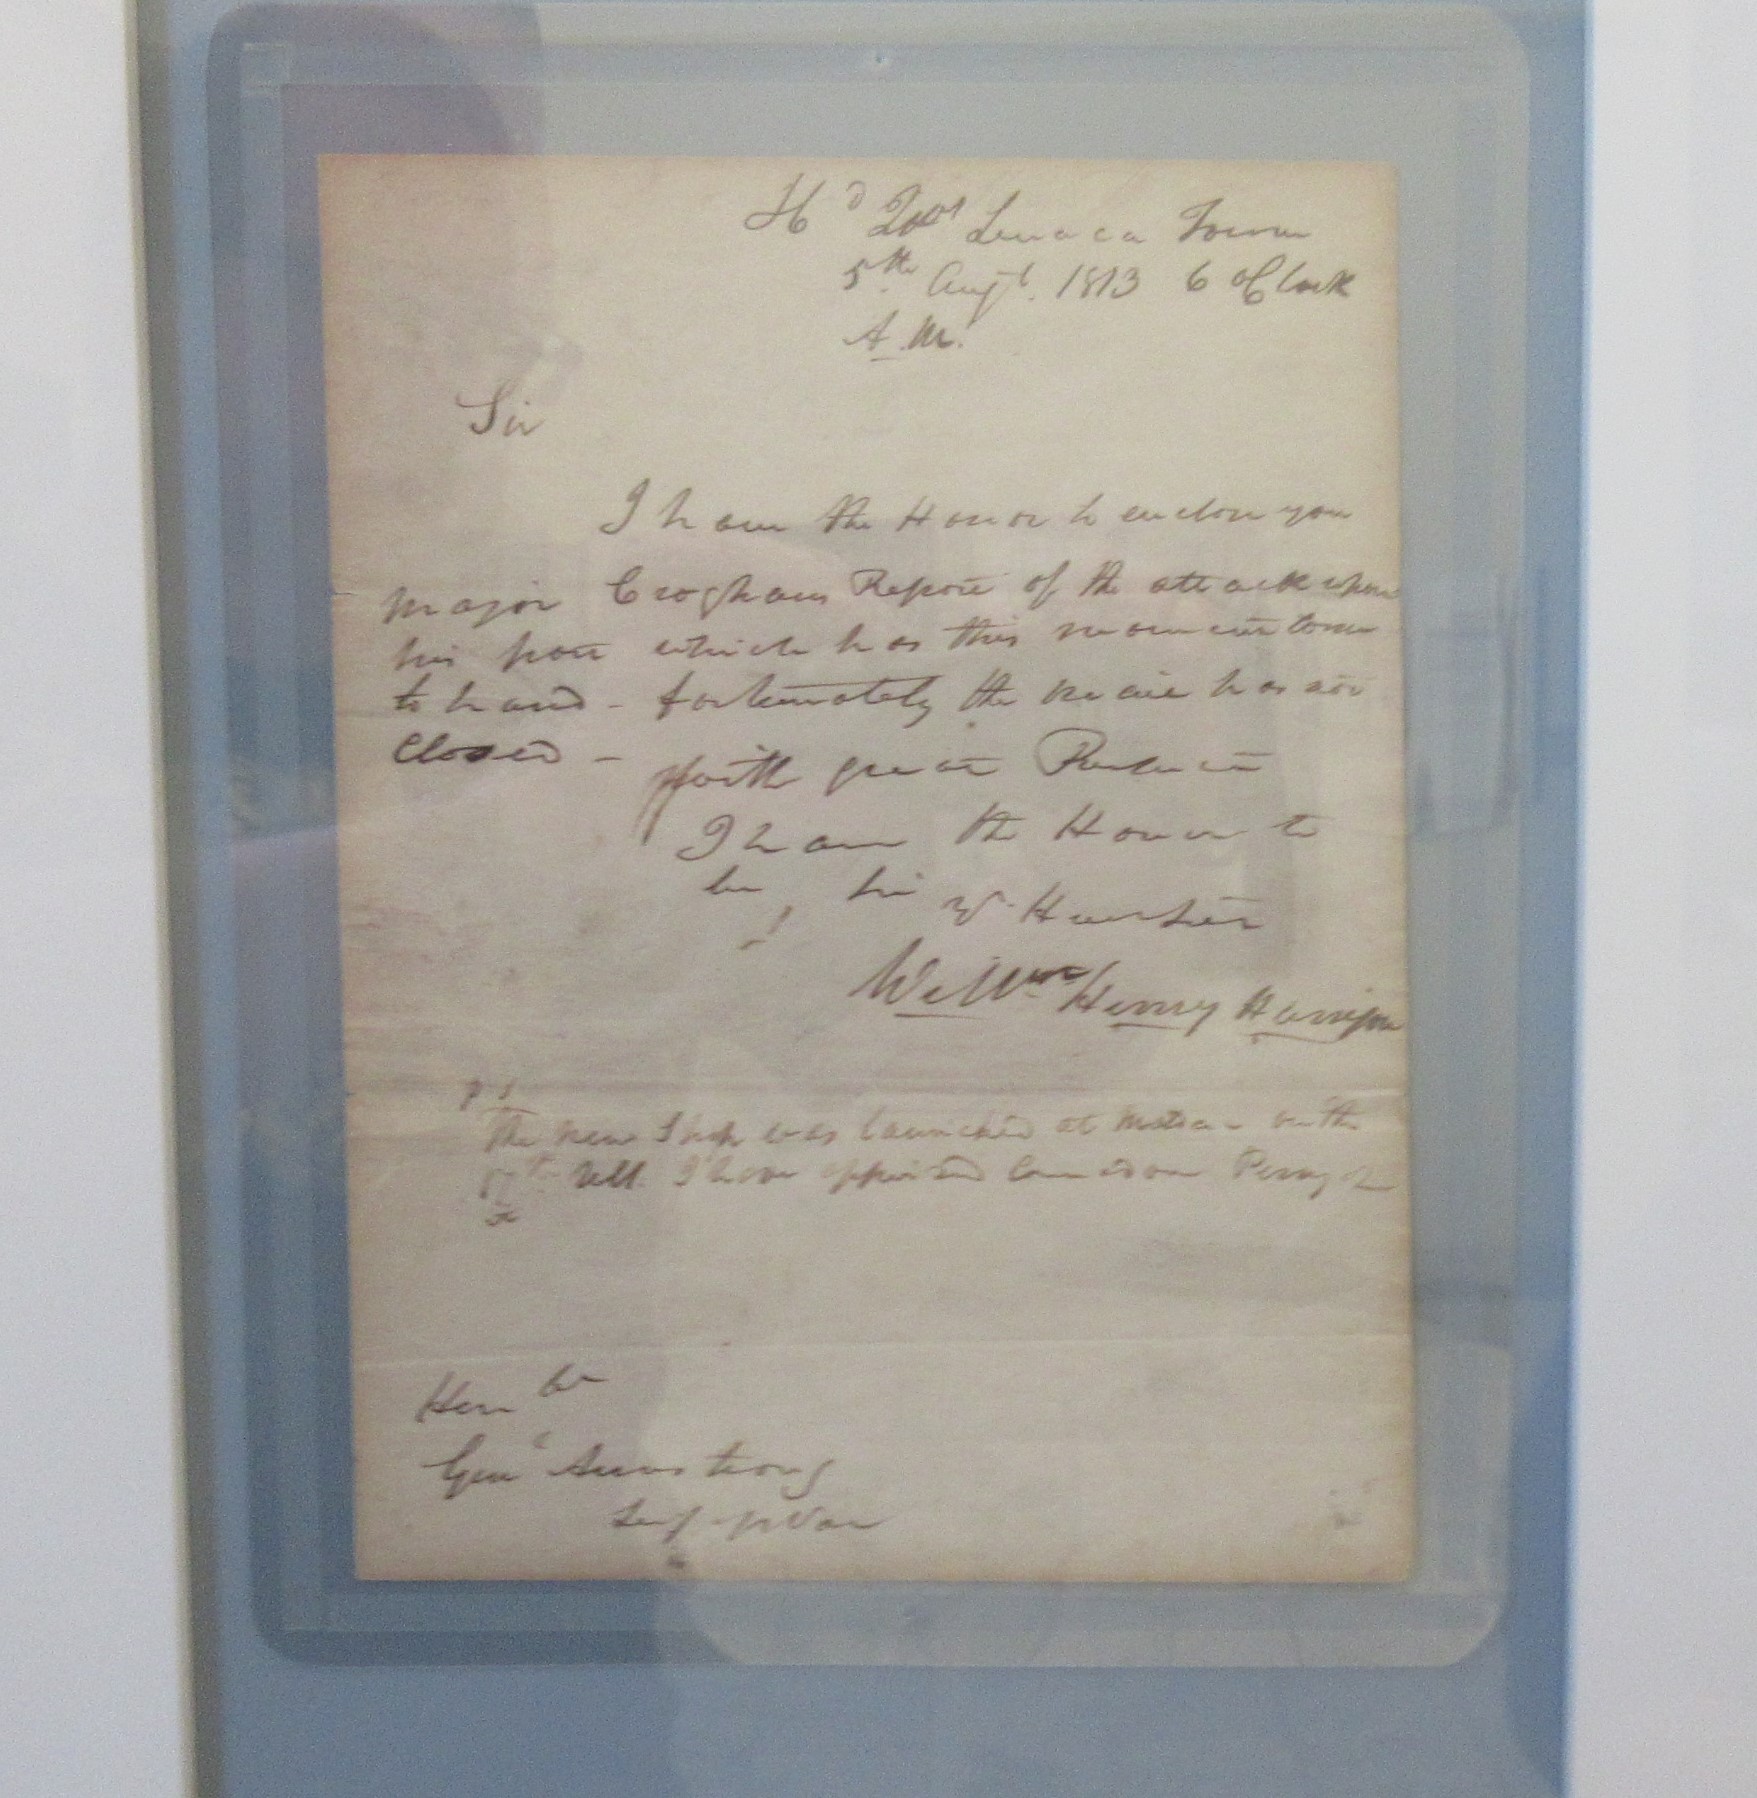 Hd Qrs Seneca Town
5th Augt. 1813 6 oClock
A.M.
Sir
I have the Honor to enclose you
Major Croghans Report of the attack upon
his post which has this moment come
to hand - fortunately the mail has not
closed -
With great Respect
I have the Honor to
be, Sir yr Hum Ser
Wm Henry Harrison
P S
The new Ship was launched at Malden on the
Ult. I have apprised Commodore Perry of
it
Honble
Genl Armstrong
Secy of War